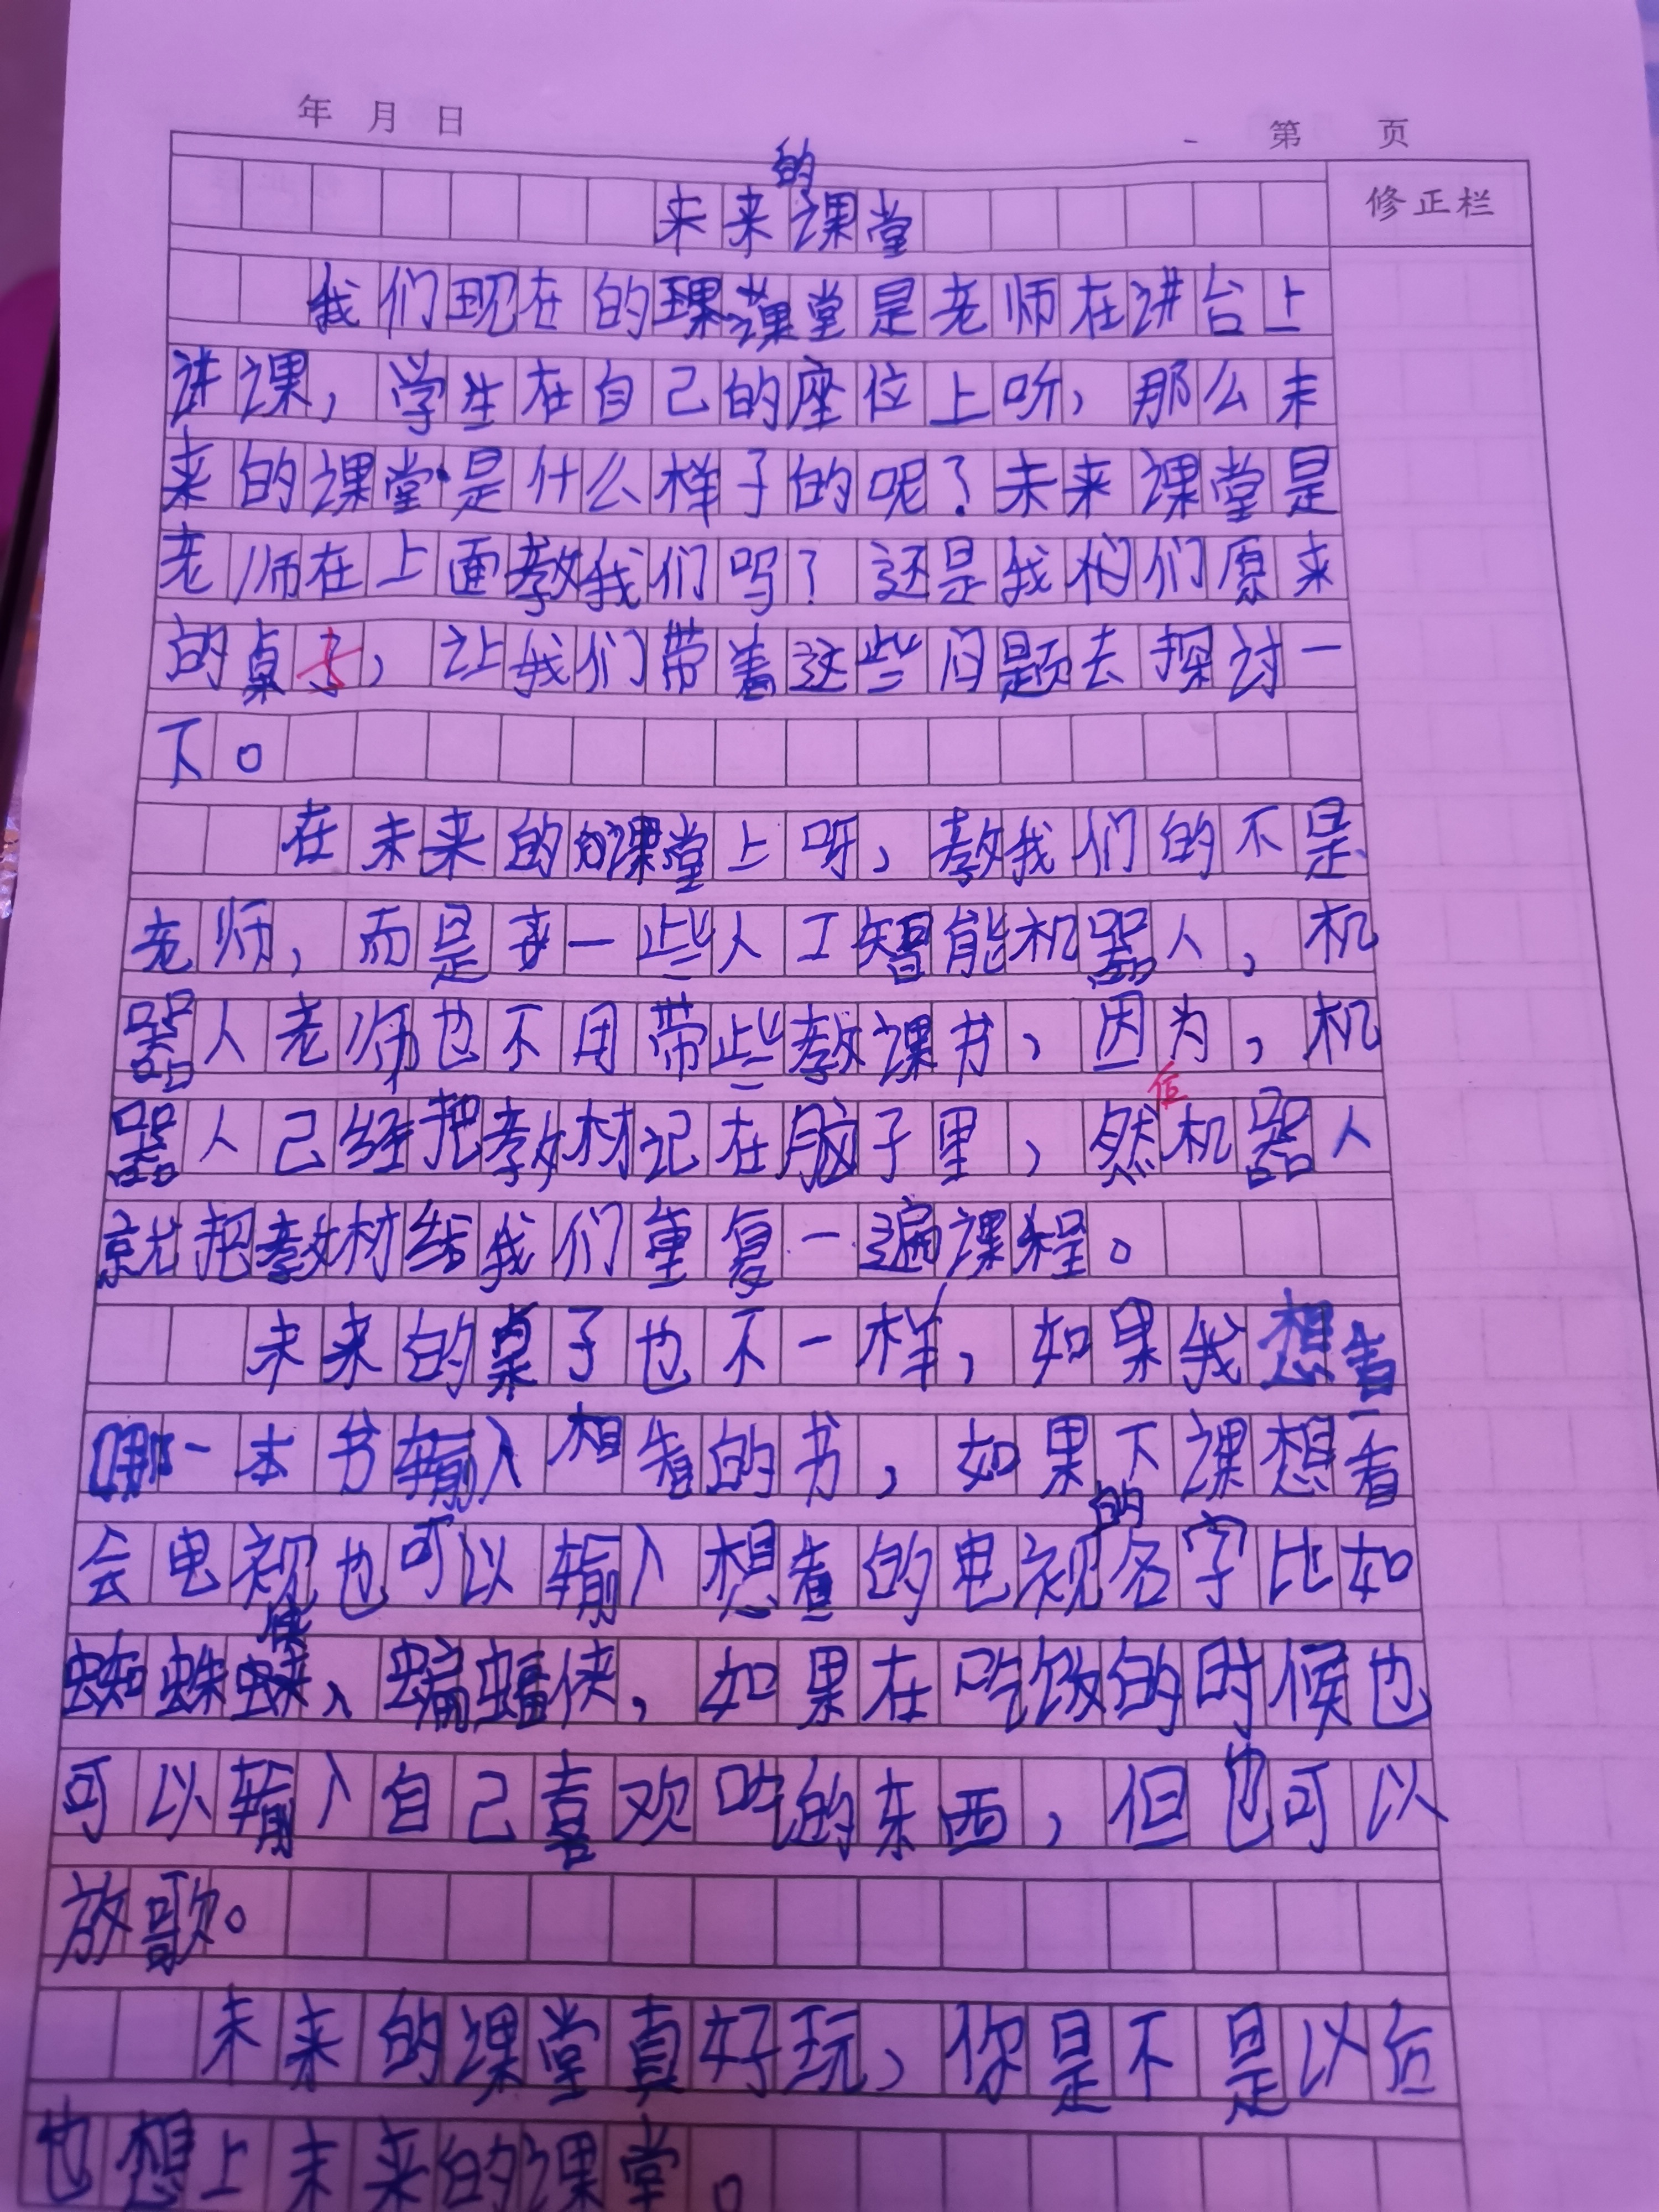 年 月 日
第 页
修正栏
未来的课堂
我们现在的课堂是老师在讲台上
讲课，学生在自己的座位上听，那么未
来的课堂是什么样子的呢？未来课堂是
老师在上面教我们吗？还是我们原来
的桌子，让我们带着这些问题去探讨一
下。
在未来的课堂上呀，教我们的不是
老师，而是一些人工智能机器人，机
器人老师也不用带些教课书，因为，机
器人己经把教材记在脑子里，然后机器人
就把教材给我们重复一遍课程。
未来的桌子也不一样，如果我想看
哪一本书输入想看的书，如果下课想看
会电视也可以输入想看的电视的名字比如
蜘蛛侠、蝙蝠侠，如果在吃饭的时候也
可以输入自己喜欢吃的东西，但也可以
放歌。
未来的课堂真好玩，你是不是以后
也想上未来的课堂。